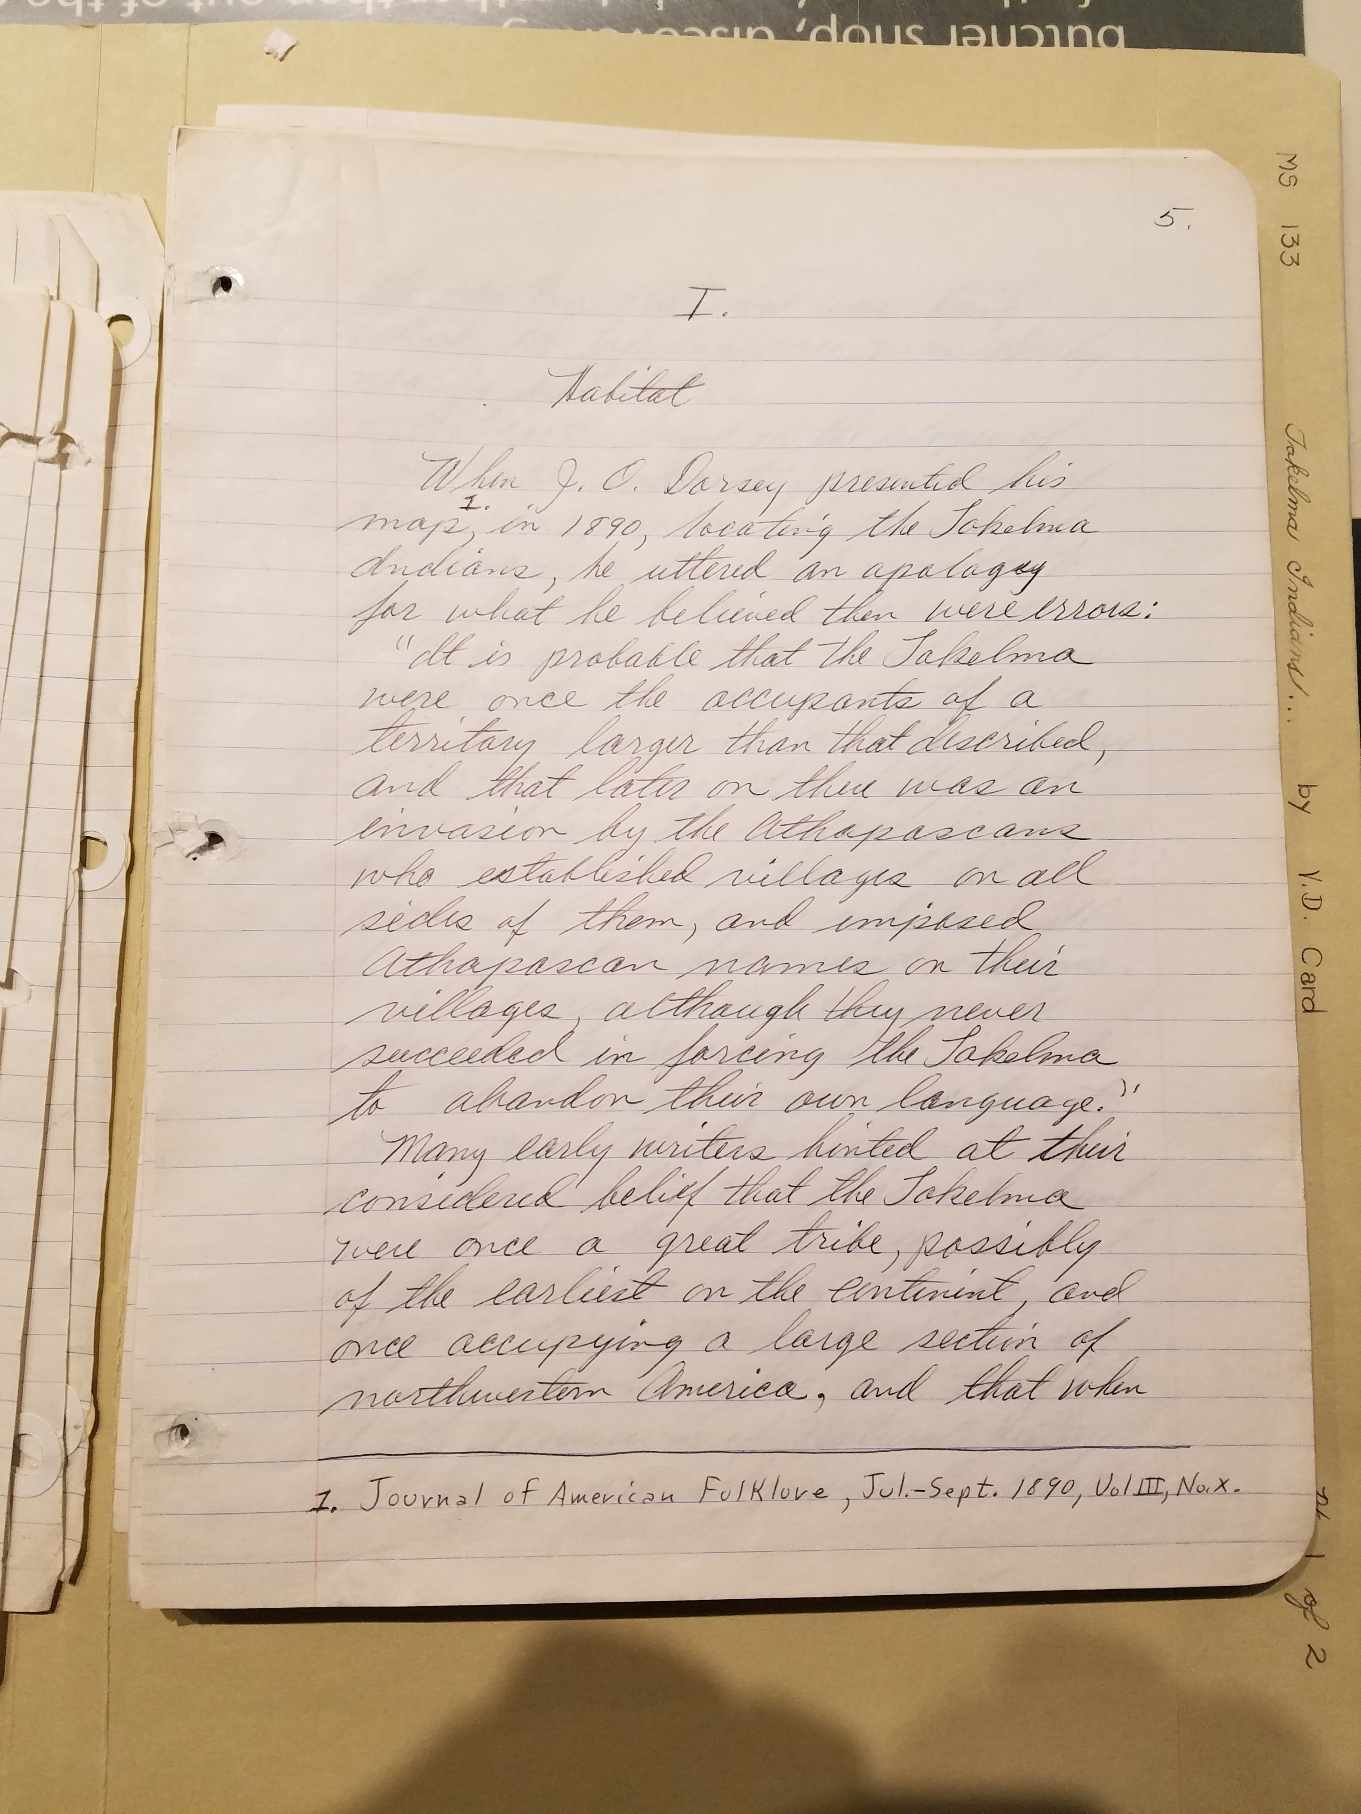 butcher shop,
5.
I.
Habitat
When J. O. Dorsey presented his
map,1. in 1890, locating the Takelma
Indians, he uttered an apology
for what he believed then were errors:
"It is probable that the Takelma
were once the occupants of a
territory larger than that described,
and that later on there was an
invasion by the Athapascans
who established villages on all
sides of them, and imposed
Athapascan names on their
villages, although they never
succeeded in forcing the Takelma
to abandon their own language."
Many early writers hinted at their
considered belief that the Takelma
were once a great tribe, possibly
of the earliest on the continent, and
once occupying a large section of
northwestern America, and that when
1. Journal of American Folklore, Jul.-Sept. 1890, Vol III, No. X.
MS 133 Takelma Indians... by V.D. Card pt 1 of 2